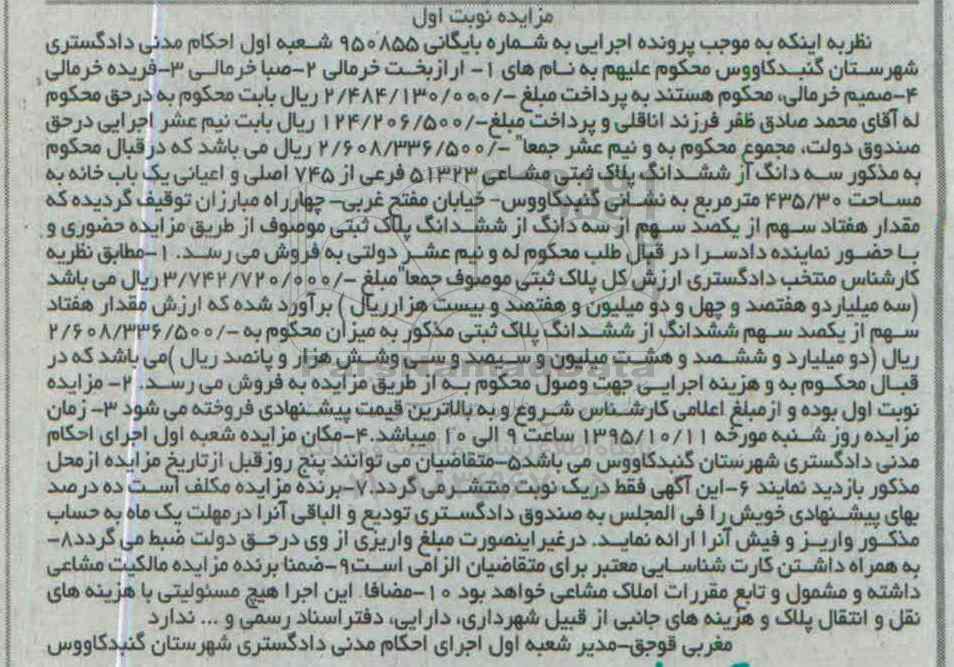 مزایده نوبت اول
نظربه اینکه به موجب پرونده اجرایی به شماره بایگانی ۹۵۰۸۵۵ شعبه اول احکام مدنی دادگستری
شهرستان گنبدکاووس محکوم علیهم به نام های ۱- ارازبخت خرمالی ۲-صبا خرمالی ۳-فریده خرمالی
۴-صمیم خرمالی، محکوم هستند به پرداخت مبلغ -/۲/۴۸۴/۱۳۰/۰۰۰ ریال بابت محکوم به درحق محکوم
له آقای محمد صادق ظفر فرزند اناقلی و پرداخت مبلغ-/۱۲۴/۲۰۶/۵۰۰ ریال بابت نیم عشر اجرایی درحق
صندوق دولت، مجموع محکوم به و نیم عشر جمعا" -/۲/۶۰۸/۳۳۶/۵۰۰ ریال می باشد که درقبال محکوم
به مذکور سه دانگ از ششدانگ پلاک ثبتی مشاعی ۵۱۳۲۳ فرعی از ۷۴۵ اصلی و اعیانی یک باب خانه به
مساحت ۴۳۵/۳۰ مترمربع به نشانی گنبدکاووس- خیابان مفتح غربی- چهارراه مبارزان توقیف گردیده که
مقدار هفتاد سهم از یکصد سهم از سه دانگ از ششدانگ پلاک ثبتی موصوف از طریق مزایده حضوری و
با حضور نماینده دادسرا در قبال طلب محکوم له و نیم عشر دولتی به فروش می رسد. ۱-مطابق نظریه
کارشناس منتخب دادگستری ارزش کل پلاک ثبتی موصوف جمعا"مبلغ -/۳/۷۴۲/۷۲۰/۰۰۰ ریال می باشد
(سه میلیاردو هفتصد و چهل و دو میلیون و هفتصد و بیست هزارریال ) برآورد شده که ارزش مقدار هفتاد
سهم از یکصد سهم ششدانگ از ششدانگ پلاک ثبتی مذکور به میزان محکوم به -/۲/۶۰۸/۳۳۶/۵۰۰
ریال (دو میلیارد و ششصد و هشت میلیون و سیصد و سی وشش هزار و پانصد ریال )می باشد که در
قبال محکوم به و هزینه اجرایی جهت وصول محکوم به از طریق مزایده به فروش می رسد. ۲- مزایده
نوبت اول بوده و ازمبلغ اعلامی کارشناس شروع و به بالاترین قیمت پیشنهادی فروخته می شود ۳- زمان
مزایده روز شنبه مورخه ۱۳۹۵/۱۰/۱۱ ساعت ۹ الی ۱۰ میباشد.۴-مکان مزایده شعبه اول اجرای احکام
مدنی دادگستری شهرستان گنبدکاووس می باشد۵-متقاضیان می توانند پنج روزقبل ازتاریخ مزایده ازمحل
مذکور بازدید نمایند ۶-این آگهی فقط دریک نوبت منتشرمی گردد ۷-برنده مزایده مکلف است ده درصد
بهای پیشنهادی خویش را فی المجلس به صندوق دادگستری تودیع و الباقی آنرا درمهلت یک ماه به حساب
مذکور واریز و فیش آنرا ارائه نماید. درغیراینصورت مبلغ واریزی از وی درحق دولت ضبط می گردد۸-
به همراه داشتن کارت شناسایی معتبر برای متقاضیان الزامی است۹-ضمنا برنده مزایده مالکیت مشاعی
داشته و مشمول و تابع مقررات املاک مشاعی خواهد بود ۱۰-مضافا این اجرا هیچ مسئولیتی با هزینه های
نقل و انتقال پلاک و هزینه های جانبی از قبیل شهرداری، دارایی، دفتراسناد رسمی و ... ندارد
مغربی قوجق-مدیر شعبه اول اجرای احکام مدنی دادگستری شهرستان گنبدکاووس